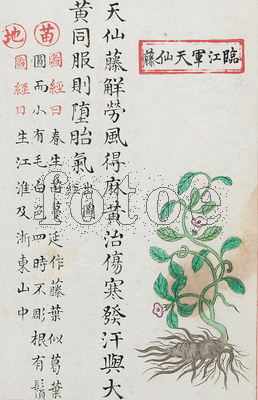 臨江軍天仙藤
天仙藤觧勞風得麻黃治傷寒發汗與大
黃同服則墮胎氣出圖經
苗
圖經曰春生苗蔓延作藤葉似葛葉
圓而小有毛白色四時不彫根有鬚
地
圖經曰生江淮及浙東山中
fotoe